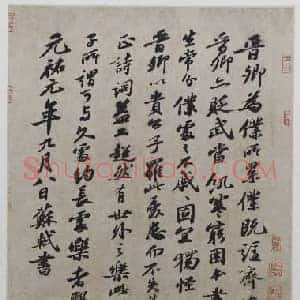 晉卿為僕所累僕既謫齊
晉卿亦貶武當飢寒窮困本書
生常分僕處之不戚戚固宜獨怪
晉卿以貴公子罹此憂患而不失
正詩詞益工超然有世外之樂此
子所謂可與久處約長處樂者耶
元祐元年九月八日蘇軾書